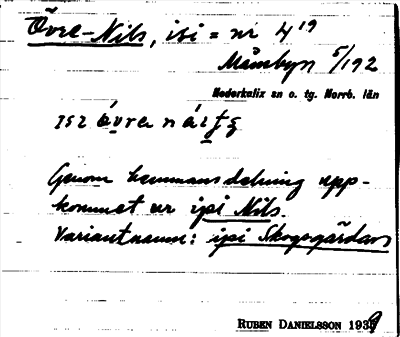 Övre-Nils, isi = nr 4¹⁹
Månsbyn 5/192
Nederkalix sn o. tg. Norrb. län
Genom hemmansdelning upp-
kommet ur ipi Nils.
Variantnamn: ipi Skogsgårdars
RUBEN DANIELSSON 1939